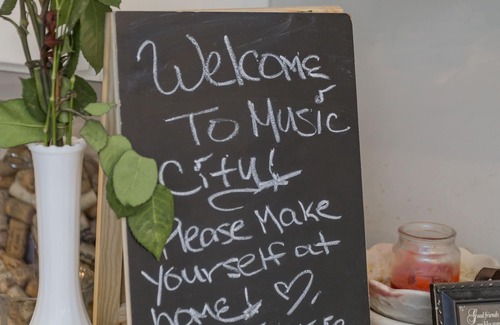 Welcome
To Music
City!
Please Make
yourself at
home!
Good friends